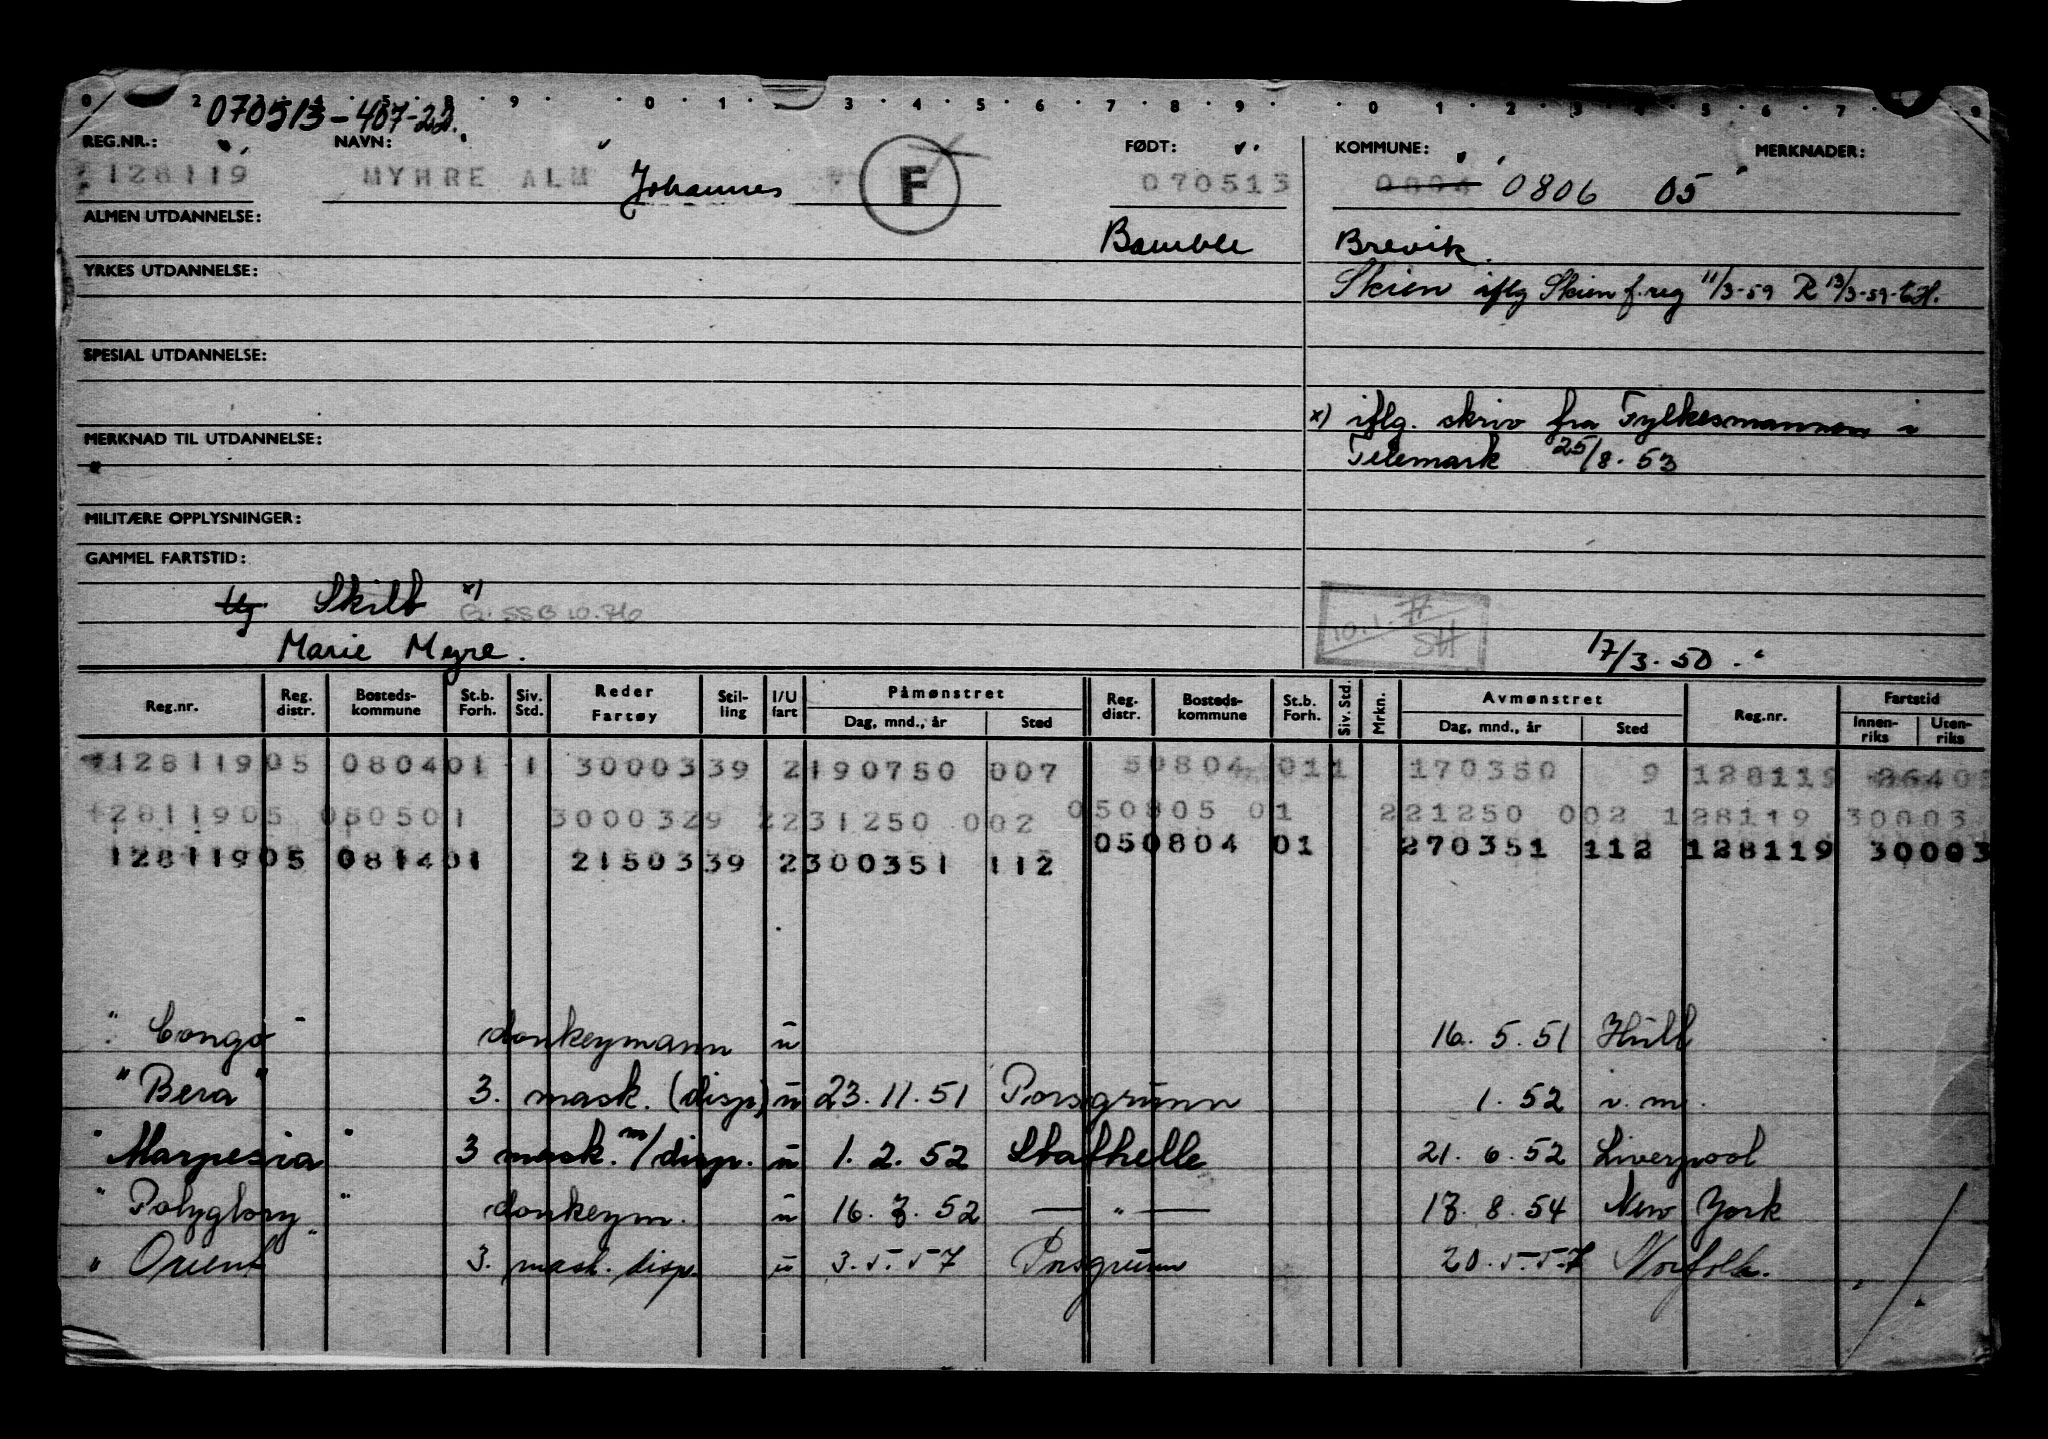 070513-407-22.
REG.NR.: NAVN: FØDT: KOMMUNE: MERKNADER:
128119 MYHRE ALM Johannes F 070513 0804 0806 05
ALMEN UTDANNELSE: Bamble Brevik.
YRKES UTDANNELSE: Skien iflg Skien f.reg 11/3-59 R 13/3-59-
SPESIAL UTDANNELSE:
x) iflg. skriv fra Fylkesmannen i
MERKNAD TIL UTDANNELSE: Telemark 25/8.53
MILITÆRE OPPLYSNINGER:
GAMMEL FARTSTID:
Ug Skilt x)
Marie Myre. 17/3.50
Reg.nr. Reg. distr. Bosteds-kommune St.b. Forh. Siv. Std. Reder Fartøy Stil-ling I/U fart Påmønstret Dag, mnd., år Sted Reg. distr. Bosteds-kommune St.b. Forh. Siv. Std. Mrkn. Avmønstret Dag, mnd., år Sted Reg.nr. Fartstid Innen-riks Uten-riks
128119 05 0804 01 1 30003 39 2 190750 007 50804 01 1 170350 9 128119
128119 05 050501 30003 29 2 231250 002 050805 01 221250 002 128119 30003
128119 05 0814 01 21503 39 2 300351 112 050804 01 270351 112 128119 30003
"Congo" donkeymann u 16.5.51 Hull
"Bera" 3. mask. (disp) u 23.11.51 Porsgrunn 1.52
"Marpesia" 3 mask. m/disp. u 1.2.52 Stathelle 21.6.52 Liverpool
"Polyglory" donkeym. u 16.7.52 — " — 17.8.54 New York
"Orient" 3. mask. disp. u 3.5.57 Porsgrunn 20.5.57 Norfolk.